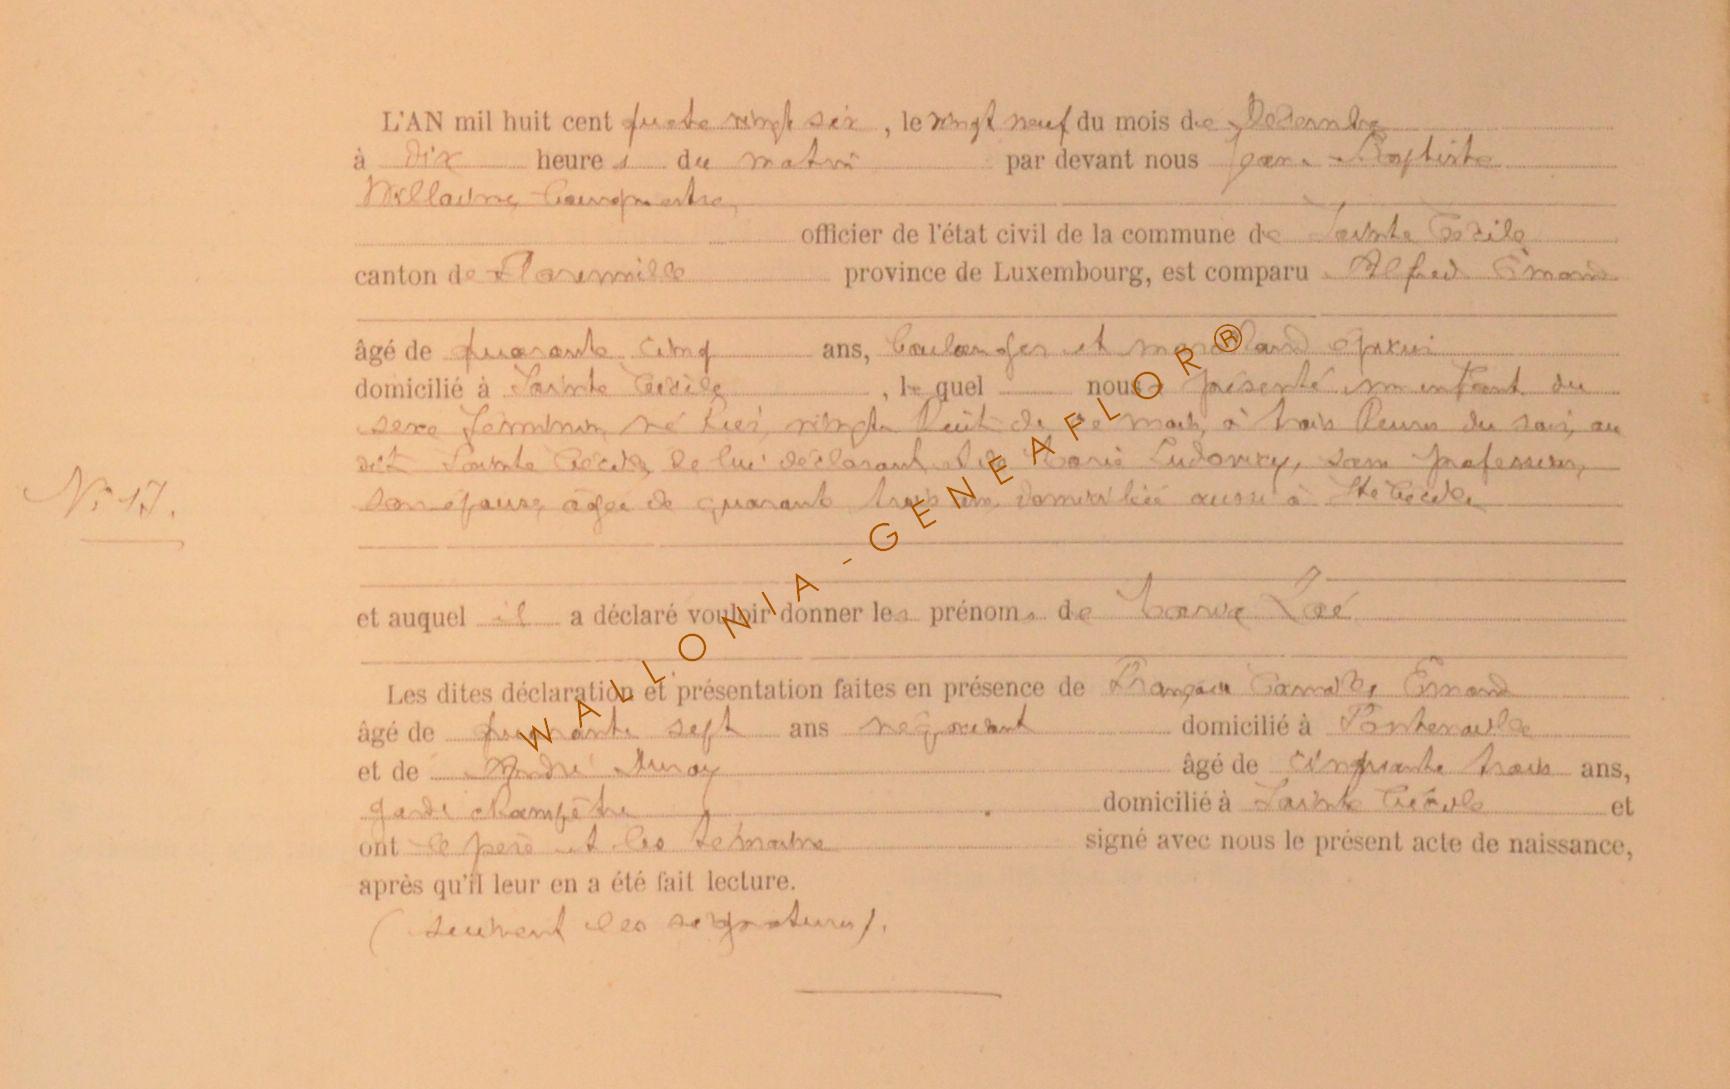 L'AN mil huit cent quatre vingt six, le vingt neuf du mois de Décembre
à dix heures du matin par devant nous Jean-Baptiste
Willaime, bourgmestre,
officier de l'état civil de la commune de Sainte Cécile
canton de Florenville province de Luxembourg, est comparu Alfred Émond
âgé de quarante cinq ans, boulanger et marchand épicier
domicilié à Sainte Cécile, lequel nous a présenté un enfant du
sexe féminin, né hier, vingt huit de ce mois, à trois heures du soir, au
dit Sainte Cécile, de lui déclarant et de Marie Ludovicy, sans profession,
son épouse, âgée de quarante trois ans, domiciliée aussi à Ste Cécile
N° 17.
et auquel il a déclaré vouloir donner les prénoms de Maria Zoé
Les dites déclaration et présentation faites en présence de François Camille Émond
âgé de quarante sept ans négociant domicilié à Fontenoille
et de André âgé de cinquante trois ans,
garde champêtre domicilié à Sainte Cécile et
ont le père et les témoins signé avec nous le présent acte de naissance,
après qu'il leur en a été fait lecture.
(suivent les signatures).
WALLONIA-GENEAFLOR®